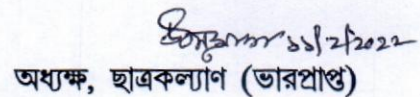 ১১/2/2022
অধ্যক্ষ, ছাত্রকল্যাণ (ভারপ্রাপ্ত)